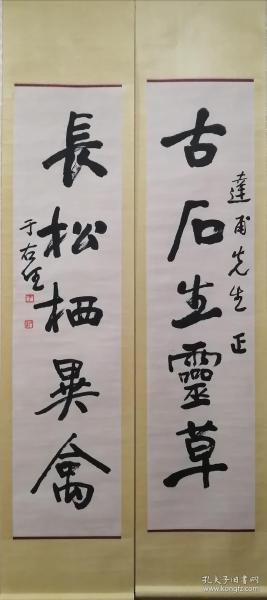 古石生靈草
達甫先生正
長松栖異禽
于右任
孔夫子旧书网